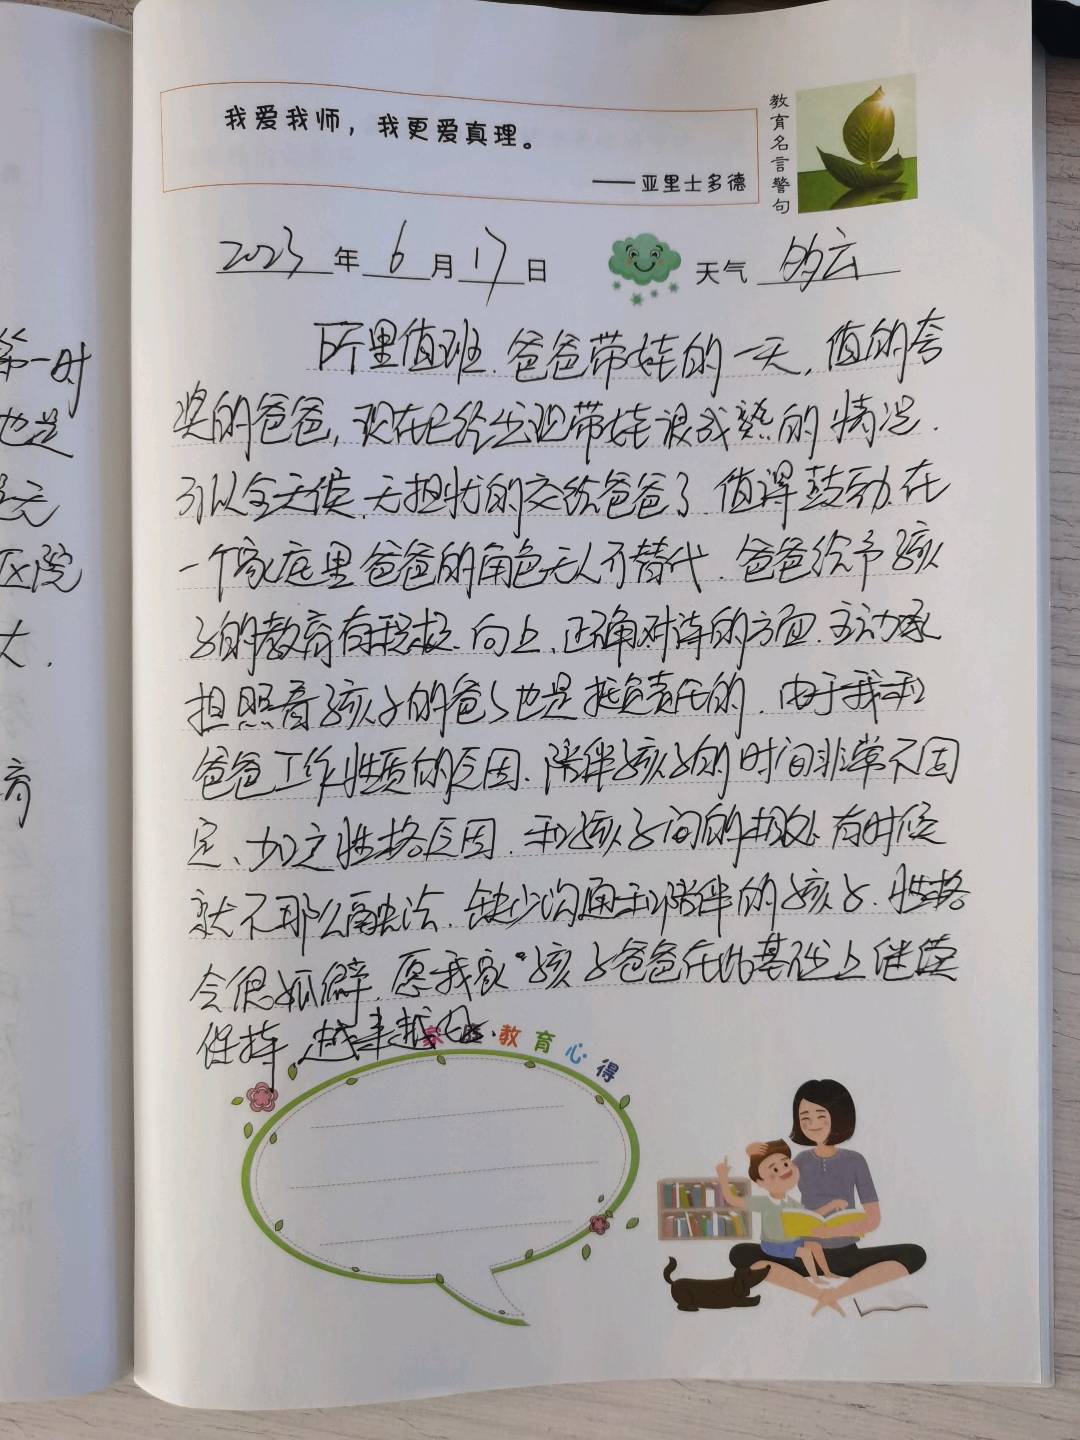 我爱我师，我更爱真理。
——亚里士多德
教育名言警句
2023年6月17日 天气 多云
所里值班.爸爸带娃的一天,值的夸
奖的爸爸,现在已经出现带娃很成熟的情况.
可以全天侯.无担忧的交给爸爸了.值得鼓励.在
一个家庭里爸爸的角色无人可替代.爸爸给予孩
子的教育有积极.向上、正确对待的方面.主动承
担照看孩子的爸爸也是挺负责任的.由于我和
爸爸工作性质的原因.陪伴孩子的时间非常不固
定、加之性格原因.和孩子间的相处有时候
就不那么融洽.缺少沟通和陪伴的孩子.性格
会很孤僻.愿我家孩子爸爸在此基础上继续
保持,越来越
教育心得
第一时
也是
医院
大.
育